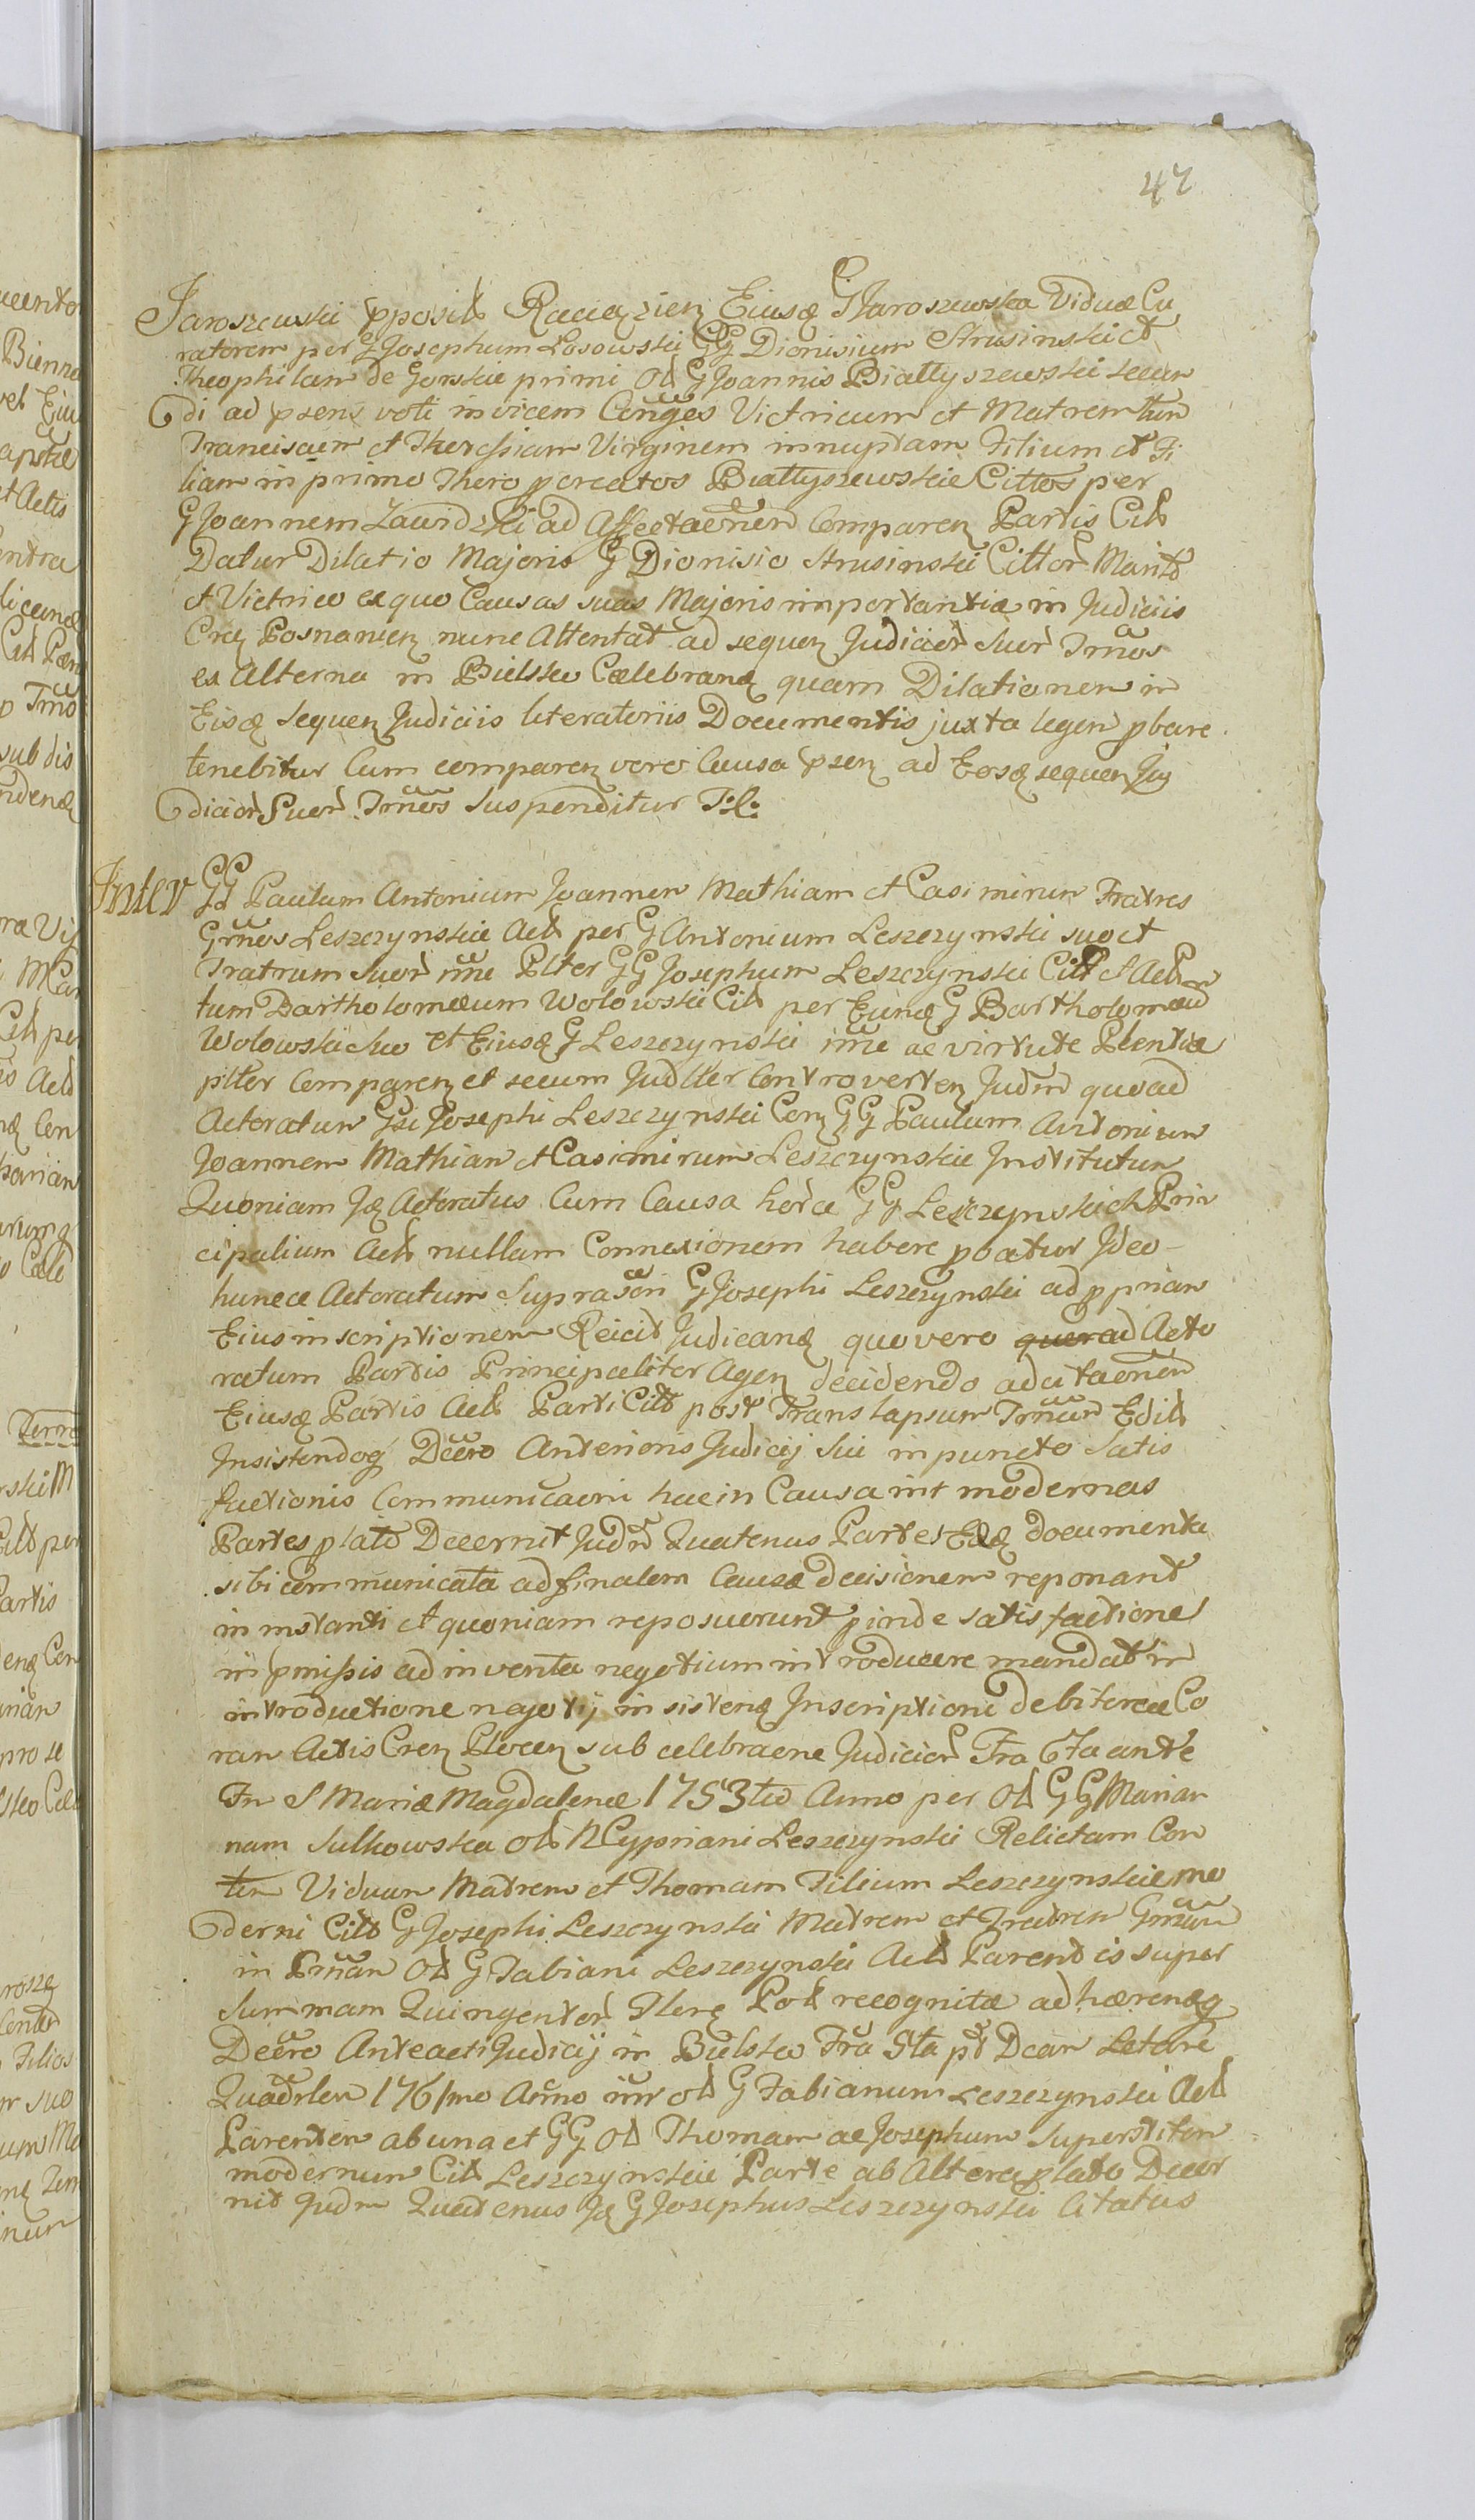 47
Jaroszewski pposit Raciązień Eiusq G Jaroszewska Viduæ Cu
ratorem per G Josephum Łosowski GG Dionisium Strusinski et
Theophilam de Gorskie primi Ol G Joannis Białłyszewski secun
di ad psens voti invicem Conges Vitricum et Matrem tum
Franciscum et Theressiam Virginem innuptam Filium et Fi
liam in primo Thoro pcreatos Białłyszewskie Cittos per
G Joannem Zawidzki ad Affectaonem Comparen Partis Citt
Datur Dilatio Majoris G Dionisio Strusinski Cittor Marito
et Victrico ex quo Causas suas Majoris importantiæ in Judiciis
Cren Posnanien nunc Attentat ad sequen Judicior Suor Trnos
ex Alterna in Bielsko Cælebranq quam Dilationem in
Eisq sequen Judiciis literatoriis Documentis juxta legem pbare
tenebitur Cum comparen vero Causa psen ad Eosq sequen Ju
dicior Suor Trnos Suspenditur T: L:
Inter GG Paulum Antonium Joannem Mathiam et Casimirum Fratres
Grnos Leszczynskie Act per G Antonium Leszczynski suo et
Fratrum Suor nne Plter GG Josephum Leszczynski Citt et Act
tum Bartholomæum Wołowski Citt per Eunq G Bartholomæu
Wołowski suo et Eiusq G Leszczynski nne ac virtute Plentiæ
plter Comparen et secum Judlter Controverten Judm quoad
Actoratum Gsi Josephi Leszczynski Con GG Paulum Antonium
Joannem Mathiam et Casimirum Leszczynskie Institutum
Quoniam Jq Actoratus Cum Causa hor̃ce GG Leszczynskich Prin
cipalium Act nullam Connexionem habere pbatur Ideo
huncce Actoratum Suprascri G Josephi Leszczynski ad pprian
Eius inscriptionem Reicit Judicanq quo vero quer ad Acto
ratum Partis Principaliter Agen decidendo ad citaonem
Eiusq Partis Act Parti Citt post Translapsum Trnum Edit
Insistendoq Decro Anterioris Judicij Sui in puncto Satis
factionis Communicaoni hac in Causa int modernas
Partes plato Decernit Judm Quatenus Partes Edq documenta
sibi communicata ad finalem Causæ decisionem reponant
in instanti et quoniam reposuerunt pinde satisfactione
in pmissis ad inventa negotium introducere mandat in
introductione negotij insistenq Inscriptioni debitoreæ Co
ram Actis Cren Plocen sub celebraone Judicior Fra 6ta ante
Fm S Mariæ Magdalenæ 1753tio Anno per Ol GG Marian
nam Sulkowska Ol N Cypriani Leszczynski Relictam Con
tem Viduam Matrem et Thomam Filium Leszczynskie mo
derni Citt G Josephi Leszczynski Matrem et Fratrem Grnum
in Prnam Ol G Fabiani Leszczynski Act Parentis super
Summam Quingentor Flenq Pol recognitæ adhærenq
Decro Anteacti Judicij in Bielsko Fra 5ta pt Dcam Letare
Quadrlem 176/mo Anno inr ol G Fabianum Leszczynski Act
Parentem ab una et GG Ol Thomam ac Josephum Superstitem
modernum Citt Leszczynskie Parte ab Altera plato Decer
nit Judm Quatenus Jq G Josephus Leszczynski Citatus